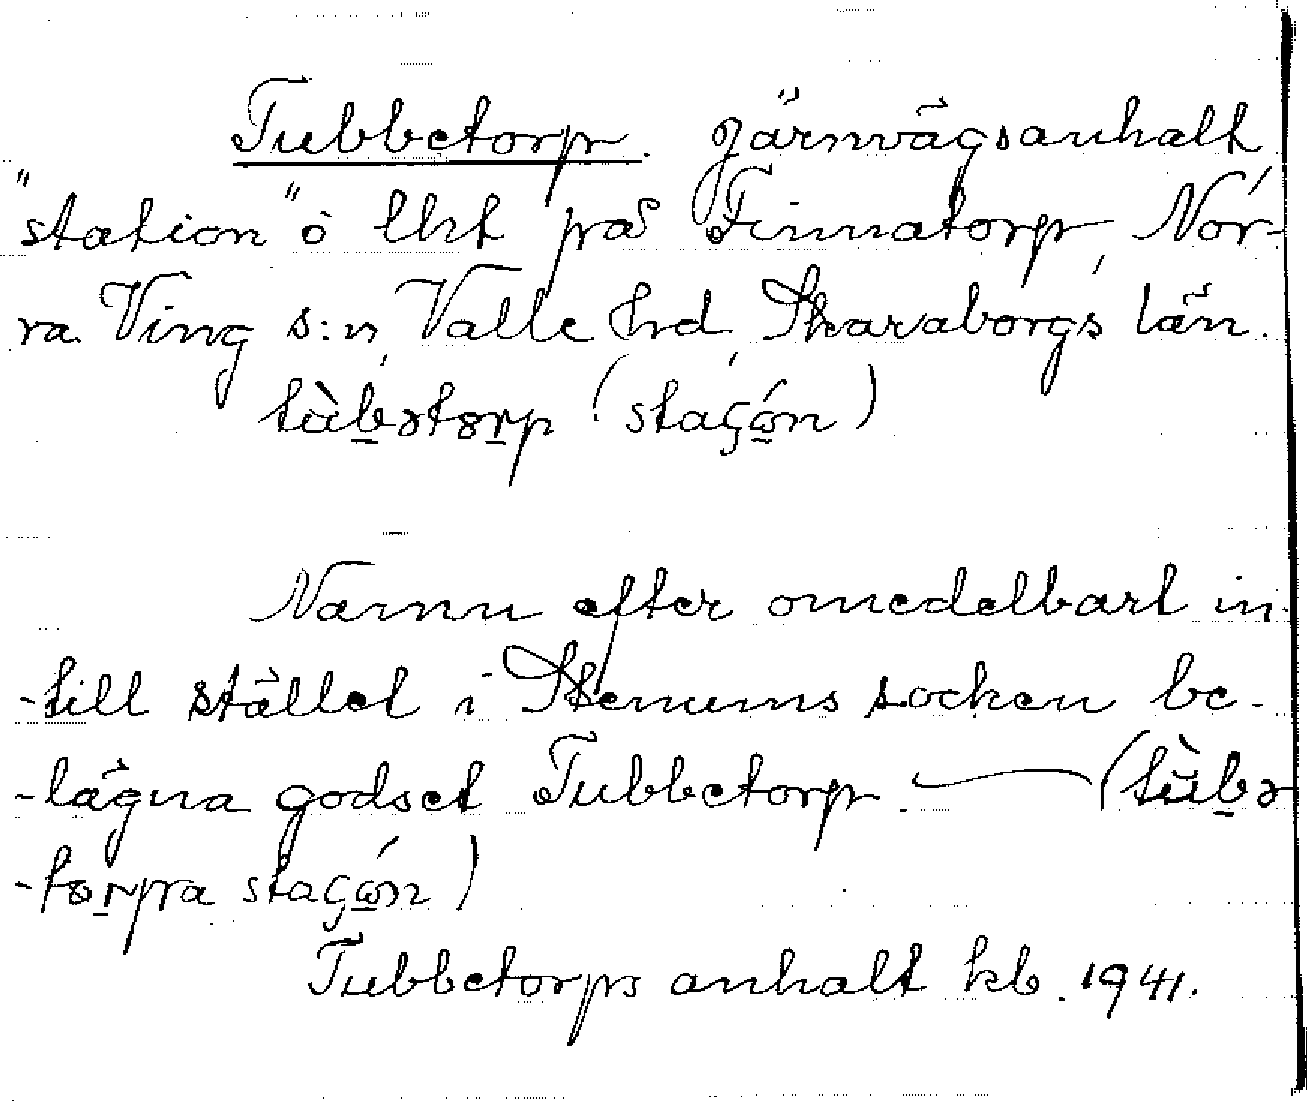 Tubbetorp. Järnvägsanhalt
"station" o lht på Finnatorp, Nor-
ra Ving s:n, Valle hrd, Skaraborgs län.
tùbətorp (staςón)
Namn efter omedelbart in-
-till stället i Stenums socken be-
-lägna godset Tubbetorp. — (tùbə
-torpra staςón)
Tubbetorps anhalt kb. 1941.